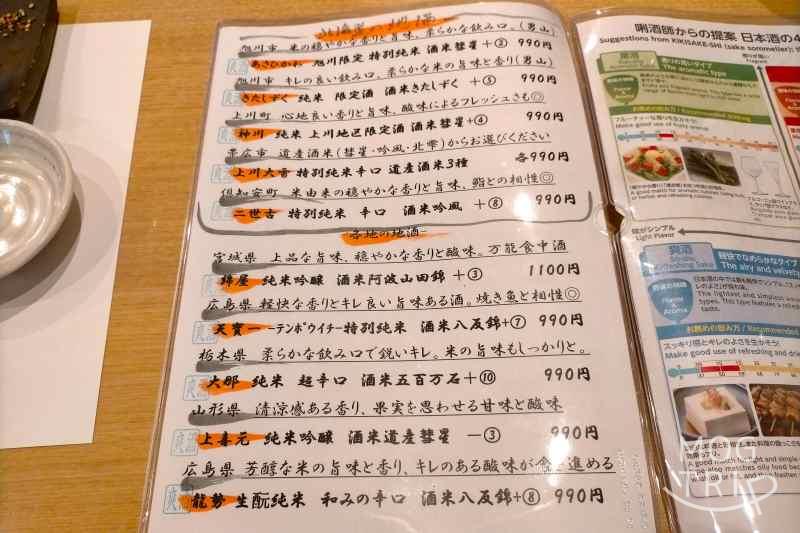 北海道の地酒
旭川市 米の穏やかな香りと旨味、柔らかな飲み口。(男山)
あさひかわ 旭川限定 特別純米 酒米彗星 +② 990円
旭川市 キレの良い飲み口、柔らかな米の旨味と香り(男山)
きたしずく 純米 限定酒 酒米きたしずく +⑤ 990円
上川町 心地良い香りと旨味、酸味によるフレッシュさも◎
神川 純米 上川地区限定酒 酒米彗星+④ 990円
帯広市 道産酒米(彗星・吟風・北雫)からお選びください
上川大雪 特別純米辛口 道産酒米3種 各990円
倶知安町 米由来の穏やかな香りと旨味、鮨との相性◎
二世古 特別純米 辛口 酒米吟風 +⑧ 990円
各地の地酒
宮城県 上品な旨味、穏やかな香りと酸味。万能食中酒
錦屋 純米吟醸 酒米阿波山田錦 +③ 1100円
広島県 軽快な香りとキレ良い旨味ある酒。焼き魚と相性◎
天寶一 ーテンポウイチー特別純米 酒米八反錦+⑦ 990円
栃木県 柔らかな飲み口で鋭いキレ。米の旨味もしっかりと。
大那 純米 超辛口 酒米五百万石+⑩ 990円
山形県 清涼感ある香り、果実を思わせる甘味と酸味
上喜元 純米吟醸 酒米道産彗星 ー③ 990円
広島県 芳醇な米の旨味と香り、キレのある酸味が食を進める
龍勢 生酛純米 和みの辛口 酒米八反錦+⑧ 990円
唎酒師からの提案 日本酒の4
Suggestions from KIKISAKE-SHI (sake sommelier):
香りの高いタイプ
The aromatic type
お薦めの飲み方 / Recommended
フルーティーな香りを生かそう!
Make good use of fruity aroma!
味がシンプル
Light Flavor
爽酒
軽快でなめらかなタイプ
The airy and velvety
Flavor & Aroma
お薦めの飲み方/Recommended
スッキリ感とキレのよさを生かそう!
Make good use of refreshing and